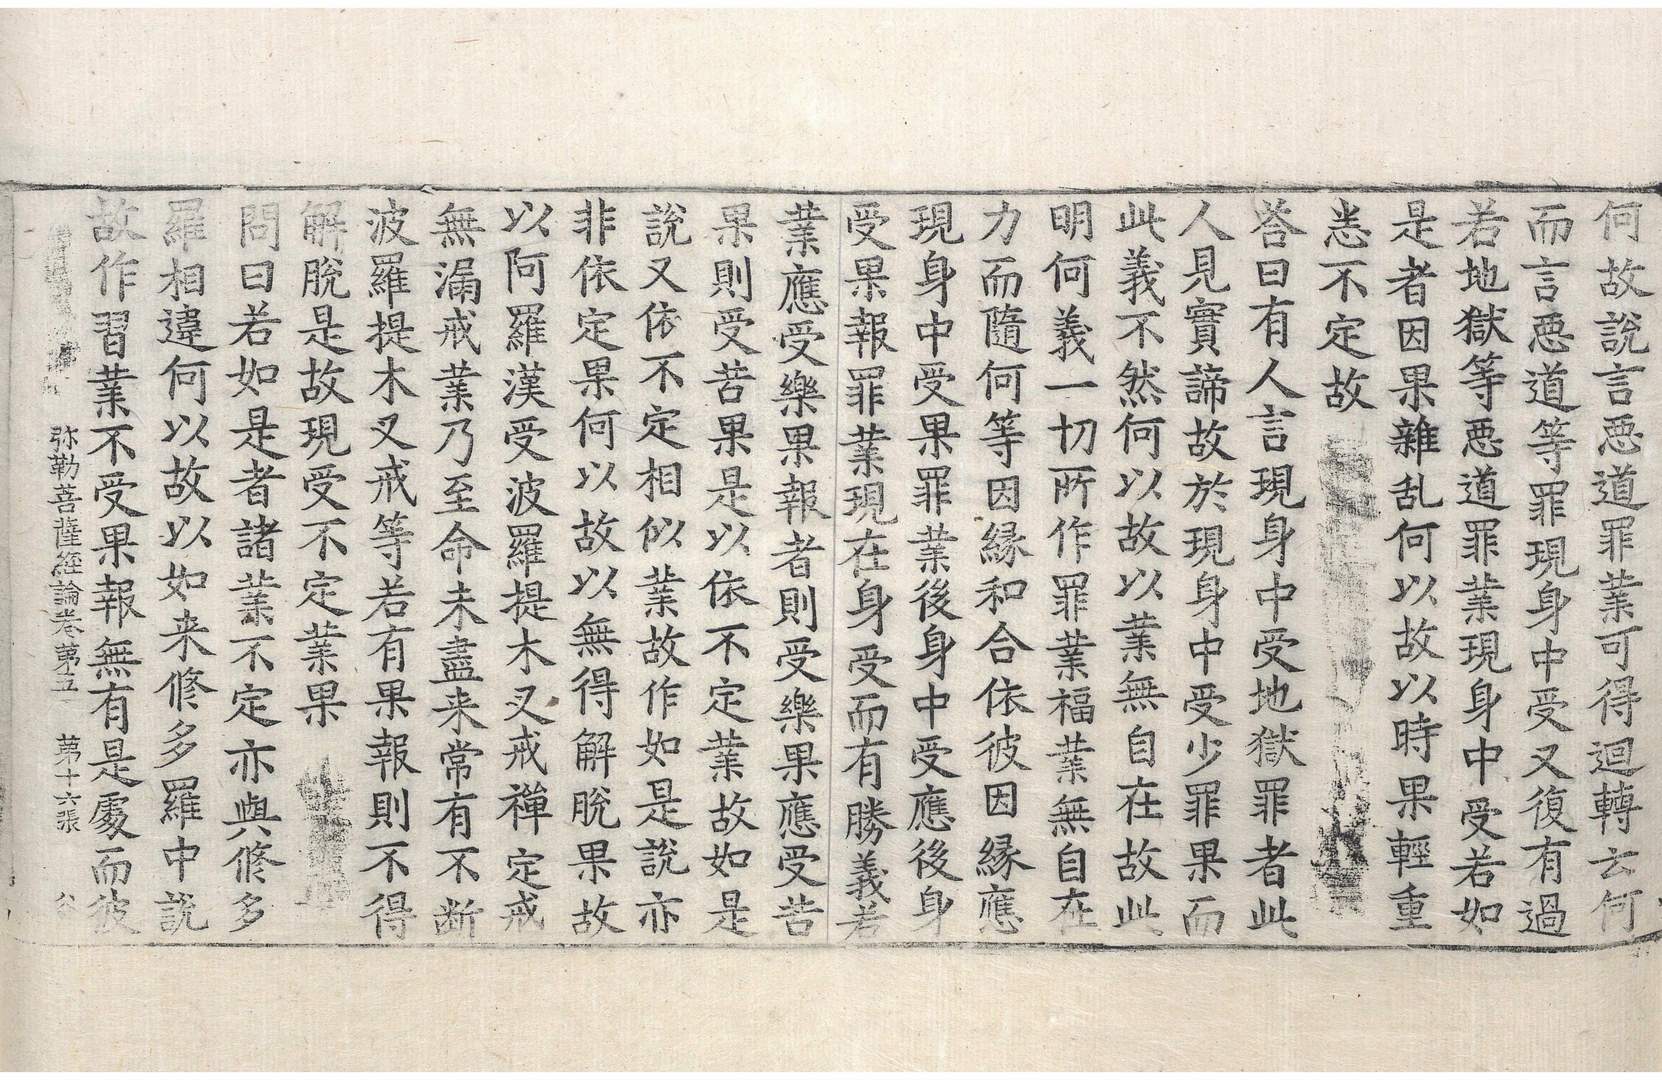 何故說言悪道罪業可得迴轉云何
而言悪道等罪現身中受又復有過
若地獄等悪道罪業現身中受若如
是者因果雜乱何以故以時果輕重
恙不定故
荅曰有人言現身中受地獄罪者此
人見實諦故於現身中受少罪果而
此義不然何以故以業無自在故此
明何義一切所作罪業福業無自在
力而隨何等因緣和合依彼因緣應
現身中受果罪業後身中受應後身
受果報罪業現在身受而有勝義若
業應受樂果報者則受樂果應受苦
果則受苦果是以依不定業故如是
說又依不定相似業故作如是說亦
非依定果何以故以無得解脫果故
以阿羅漢受波羅提木叉戒禪定戒
無漏戒業乃至命未盡来常有不断
波羅提木叉戒等若有果報則不得
解脫是故現受不定業果
問曰若如是者諸業不定亦與修多
羅相違何以故以如来修多羅中說
故作習業不受果報無有是處而彼
弥勒菩薩經論卷第五　第十六張